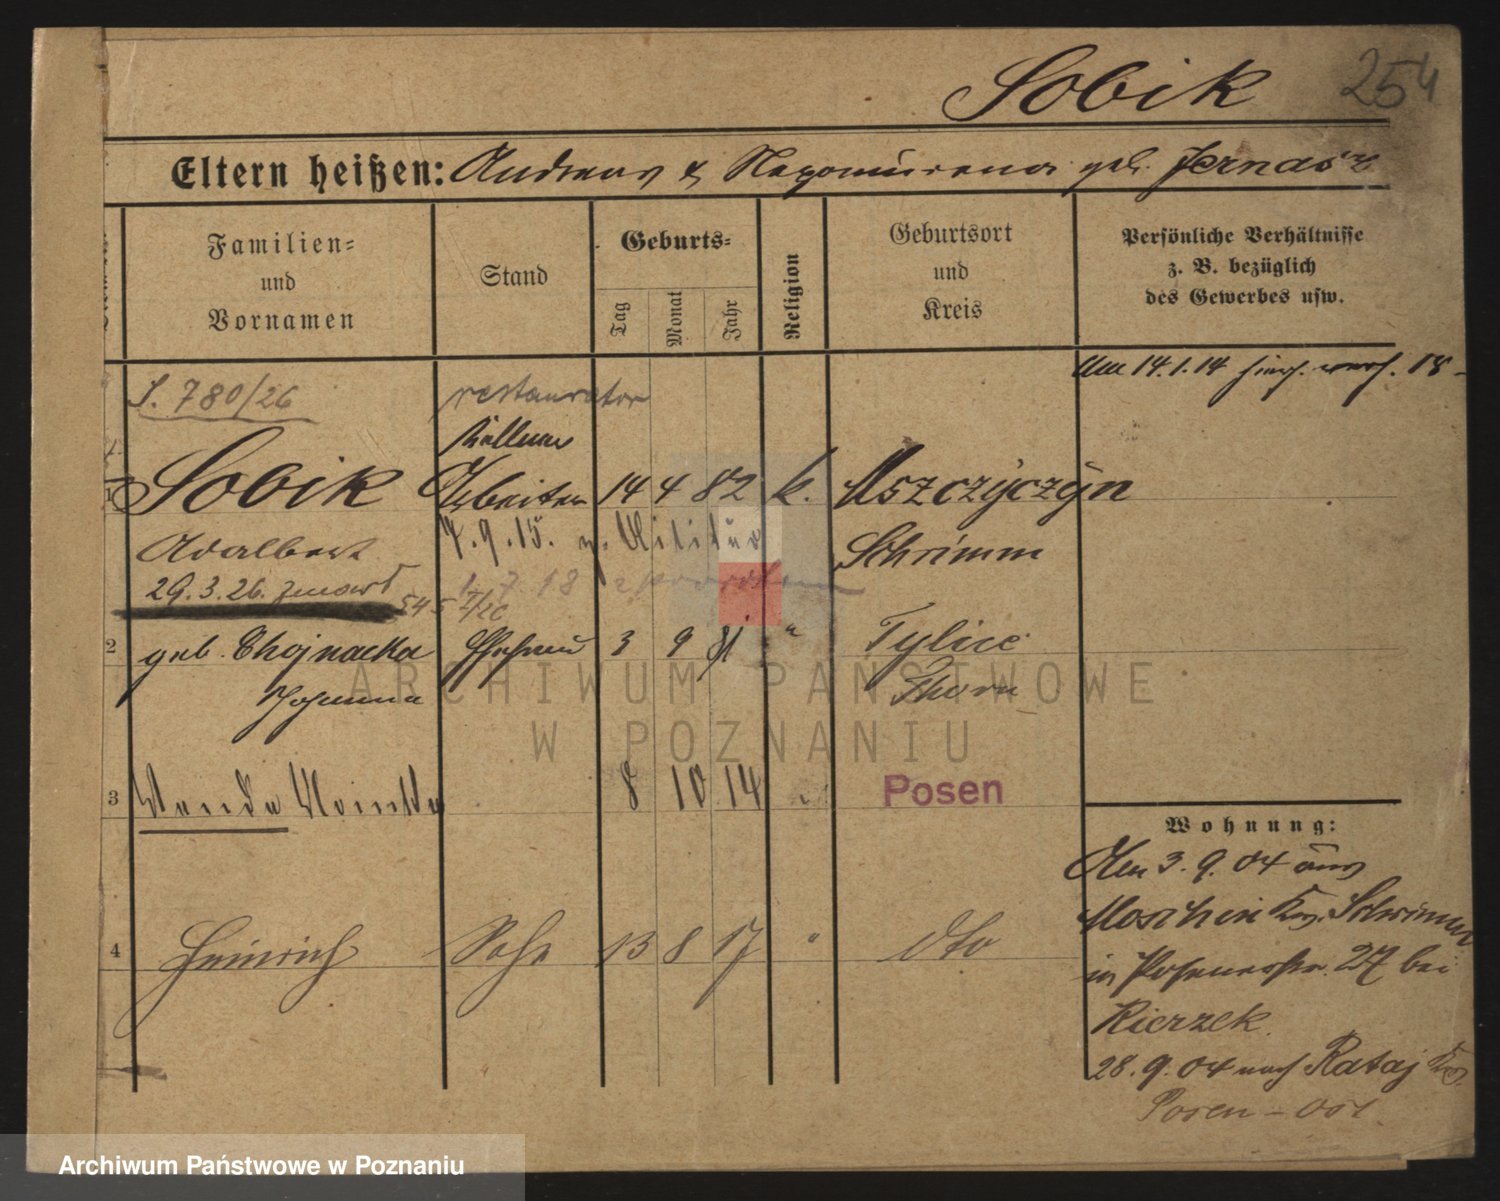 Sobik 254
Eltern heißen: Andreas & Nepomucena geb. Jernasz
Familien=
und
Vornamen
Stand
Geburts=
Tag
Monat
Jahr
Religion
Geburtsort
und
Kreis
Persönliche Verhältnisse
z. B. bezüglich
des Gewerbes usw.
Am 14.1.14
S. 780/26 restaurator
Kellner
1 Sobik Arbeiter 14 4 82 k. Mszczyczyn
Adalbert 7.9.15. z. Militär Schrimm
29.3.26. 545 1. 7. 18
2 geb. Chojnacka Ehefrau 3 9 81 " Tylice
Johanna Thorn
ARCHIWUM PAŃSTWOWE
W POZNANIU
3 Wanda 8 10 14 " Posen
Wohnung:
Den 3.9.04 aus
Moschin Krs. Schrimm
in Posenerstr. 27 bei
Kierzek.
28.9.04 nach Rataj Krs.
Posen-Ost
4 Heinrich Sohn 13 8 17 " dto
Archiwum Państwowe w Poznaniu